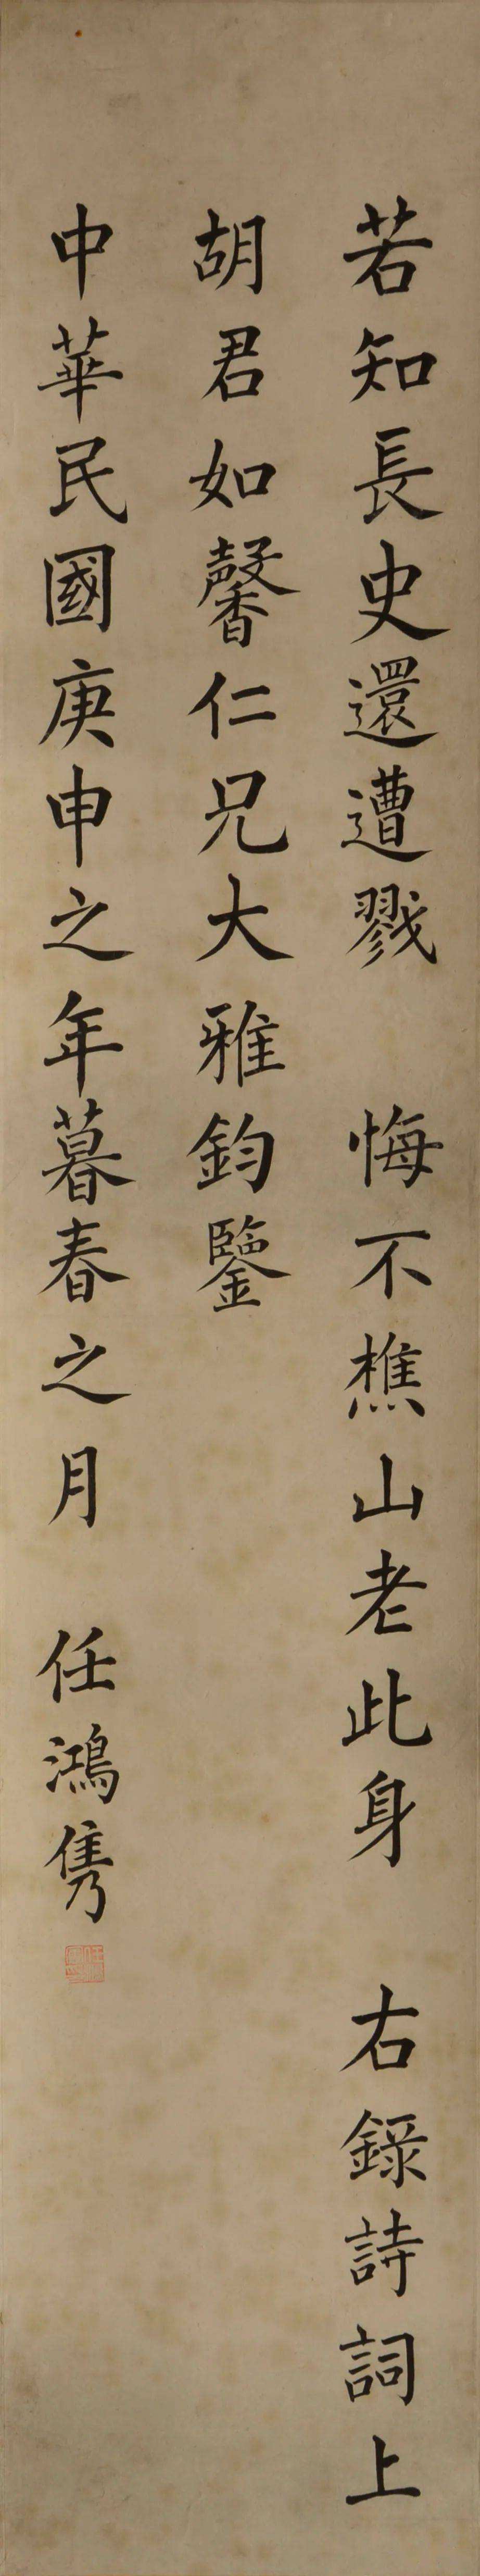 若知長史還遭戮 悔不樵山老此身 右錄詩詞上
胡君如馨仁兄大雅鈞鑒
中華民國庚申之年暮春之月 任鴻雋